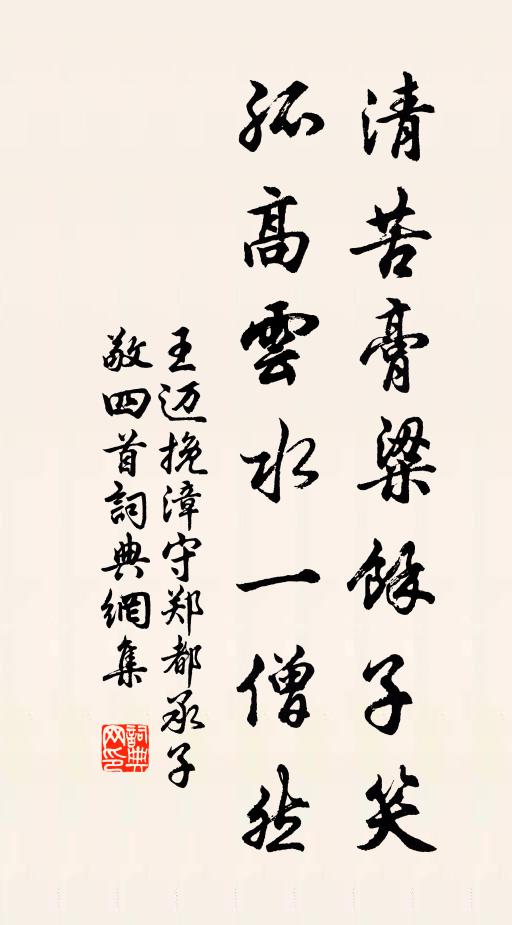 清苦膏粱餘子笑
孤高雲水一僧然
王迈挽漳守郑都承子
敬四首詞典網集
詞典网印